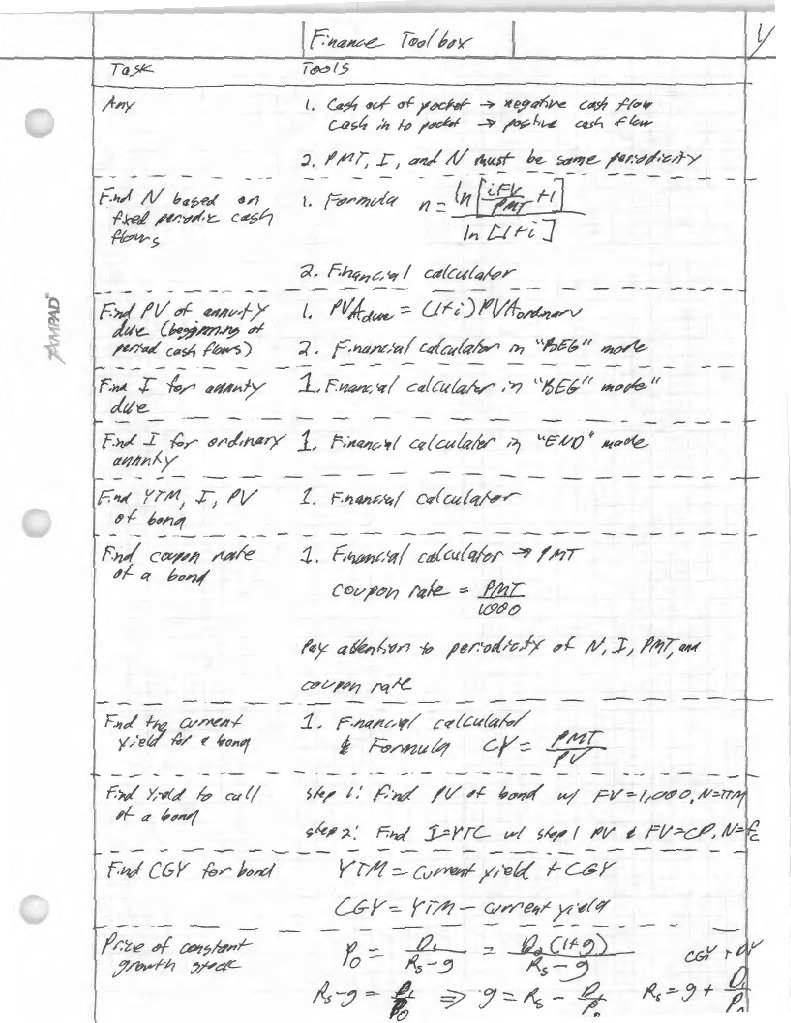 Finance Toolbox
Y
Task Tools
Any 1. Cash out of pocket → negative cash flow
cash in to pocket → positive cash flow
2. PMT, I, and N must be same periodicity
Find N based on
fixed periodic cash
flows
1. Formula n = ln[iFV/PMT + 1] / ln[1+i]
2. Financial calculator
AMPAD
Find PV of annuity
due (beggining of
period cash flows)
1. PVA_due = (1+i) PVA_ordinary
2. Financial calculator in "BEG" mode
Find I for annuity
due
1. Financial calculator in "BEG" mode"
Find I for ordinary
annuity
1. Financial calculator in "END" mode
Find YTM, I, PV
of bond
1. Financial calculator
Find coupon rate
of a bond
1. Financial calculator → PMT
coupon rate = PMT/1000
Pay attention to periodicity of N, I, PMT, and
coupon rate
Find the current
yield for a bond
1. Financial calculator
& Formula CY = PMT/PV
Find Yield to call
of a bond
step 1: Find PV of bond w/ FV=1,000, N=TTM
step 2: Find I=YTC w/ step 1 PV & FV=CP, N=
Find CGY for bond
YTM = current yield + CGY
CGY = YTM - current yield
Price of constant
growth stock
P₀ = D₁/(R_s-g) = D₀(1+g)/(R_s-g) CGY + DY
R_s-g = D₁/P₀ ⇒ g = R_s - D₁/P₀ R_s = g + D₁/P₀